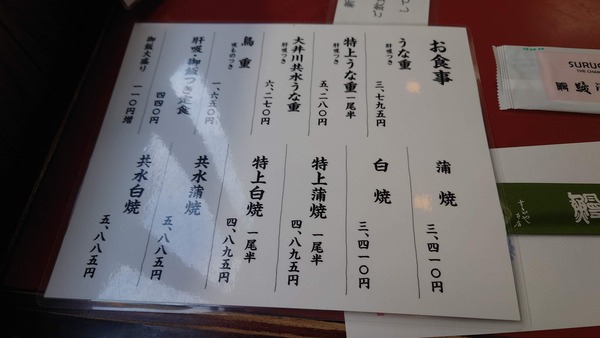 お食事
うな重
肝吸つき
三、七九五円
特上うな重 一尾半
肝吸つき
五、二八〇円
大井川共水うな重
肝吸つき
六、二七〇円
鳥重
吸ものつき
一、六五〇円
肝吸・御飯つき定食
四四〇円
御飯大盛り
一一〇円増
蒲焼
三、四一〇円
白焼
三、四一〇円
特上蒲焼 一尾半
四、八九五円
特上白焼 一尾半
四、八九五円
共水蒲焼
五、八八五円
共水白焼
五、八八五円
SURUG
THE CHAN